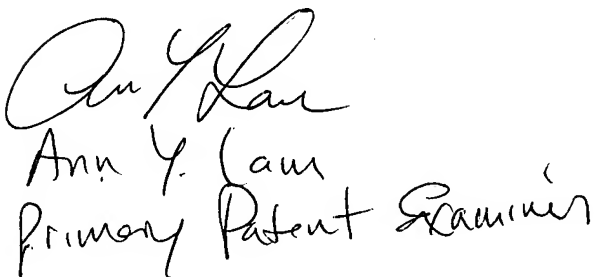 Ann Y Lam
Ann Y. Lam
Primary Patent Examiner